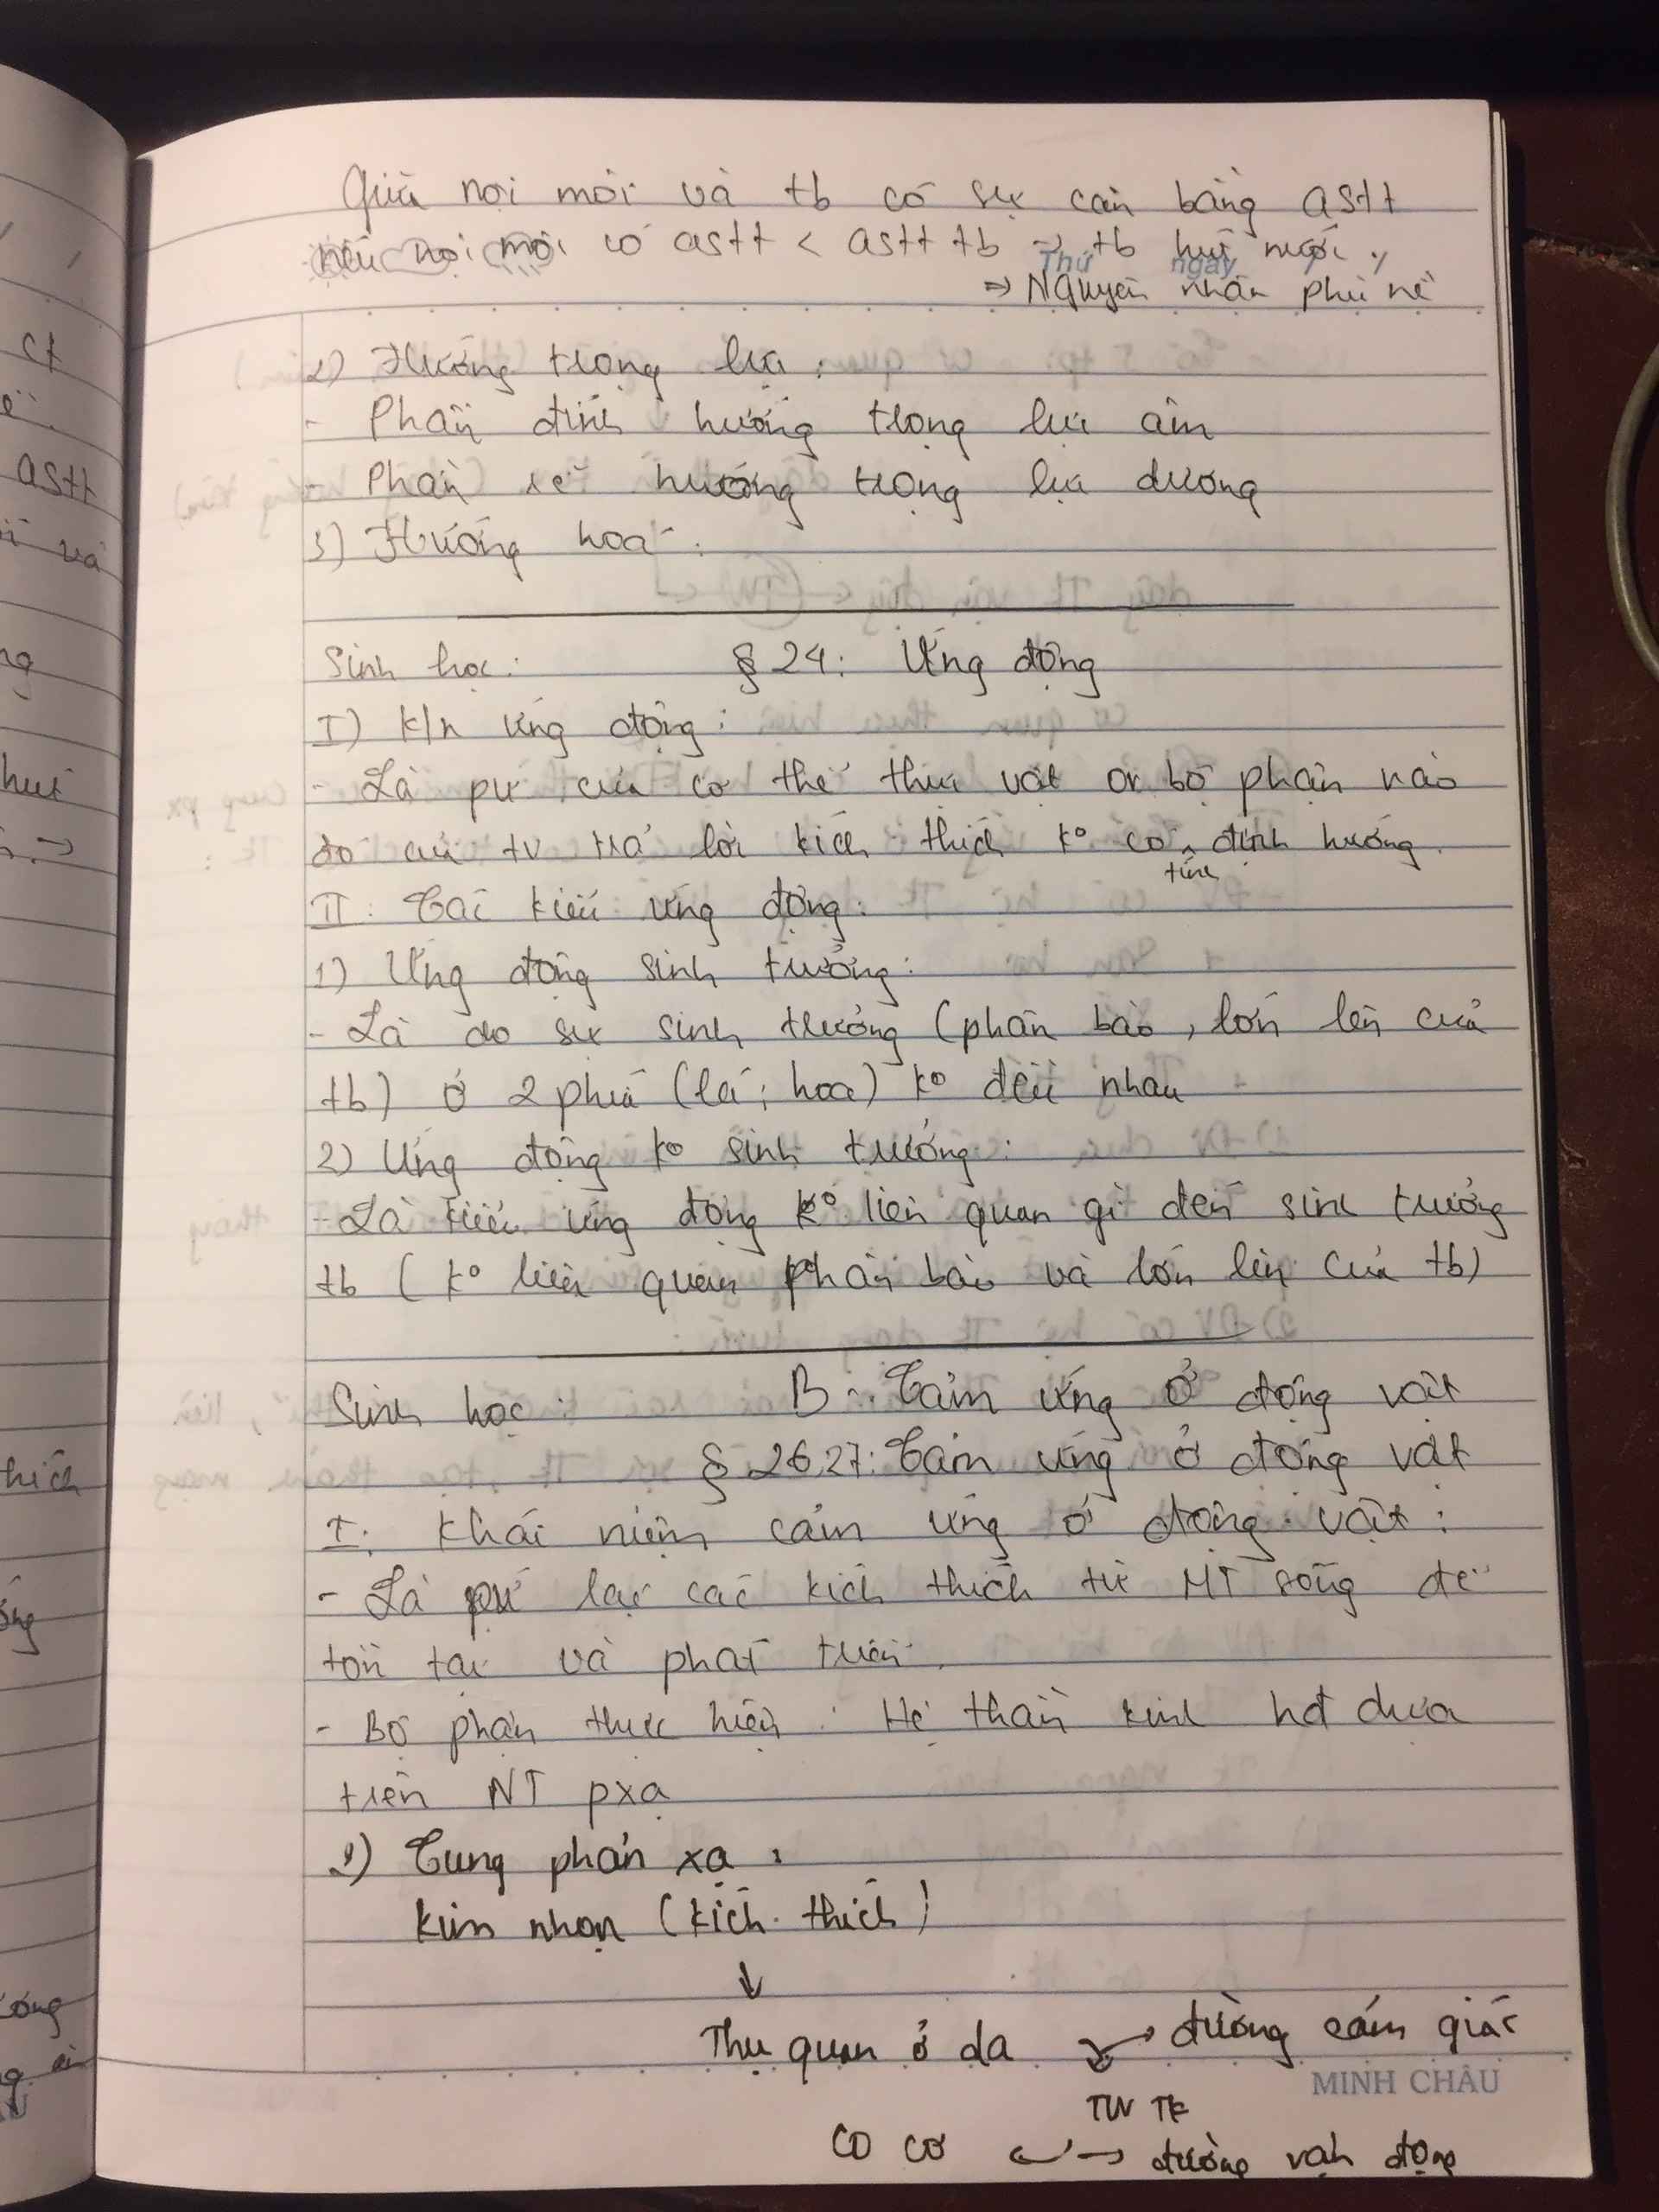 Giữa nội môi và tb có sự cân bằng astt
nếu nội môi có astt < astt tb → tb hút nước.
Thứ ngày
⇒ Nguyên nhân phù nề
2) Hướng trọng lực:
- Phần đỉnh hướng trọng lực âm
- Phần rễ hướng trọng lực dương
3) Hướng hoá:
Sinh học: § 24: Ứng động
I) K/n ứng động:
- Là pư của cơ thể thực vật or bộ phận nào
đó của tv trả lời kích thích ko có tính định hướng.
II. Các kiểu ứng động:
1) Ứng động sinh trưởng:
- Là do sự sinh trưởng (phân bào, lớn lên của
tb) ở 2 phía (lá; hoa) ko đều nhau
2) Ứng động ko sinh trưởng:
- Là kiểu ứng động ko liên quan gì đến sinh trưởng
tb (ko liên quan phân bào và lớn lên của tb)
Sinh học: B. Cảm ứng ở động vật
§ 26,27: Cảm ứng ở động vật
I. Khái niệm cảm ứng ở động vật:
- Là pứ lại các kích thích từ MT sống để
tồn tại và phát triển.
- Bộ phận thực hiện: Hệ thần kinh hđ dựa
trên NT pxạ
Cung phản xạ:
Kim nhọn (kích thích)
↓
Thụ quan ở da → đường cảm giác
MINH CHÂU
TW TK
co cơ ← → đường vận động
ct
astt
và
hút
thích